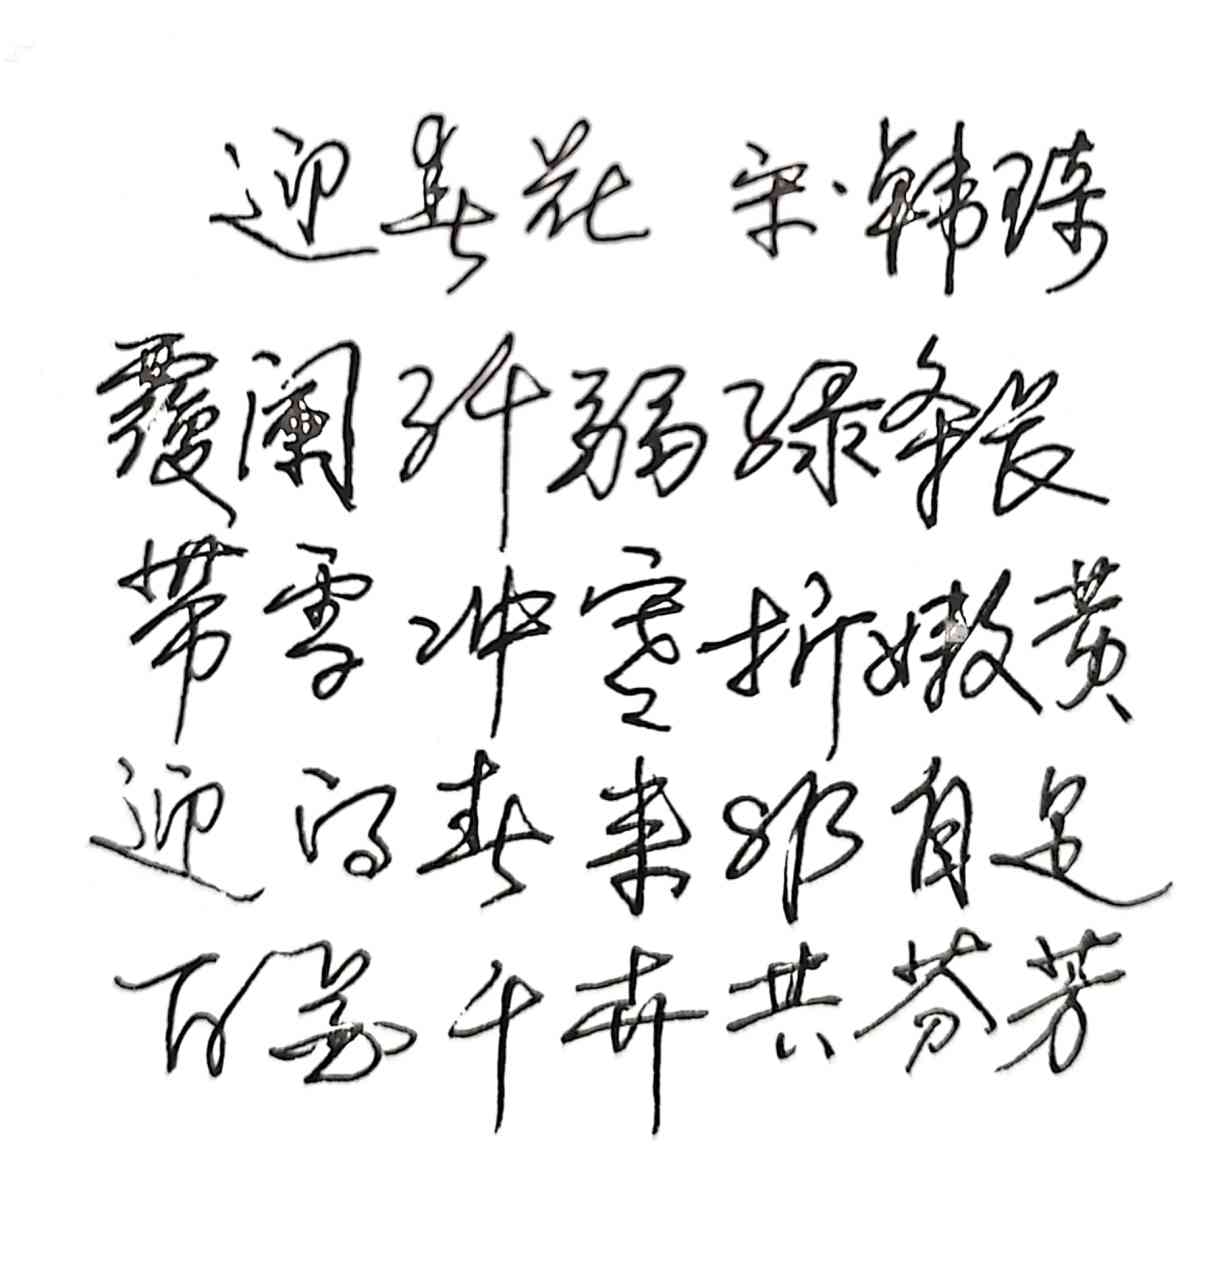 迎春花 宋·韩琦
覆阑纤弱绿条长
带雪冲寒折嫩黄
迎得春来非自足
百花千卉共芬芳